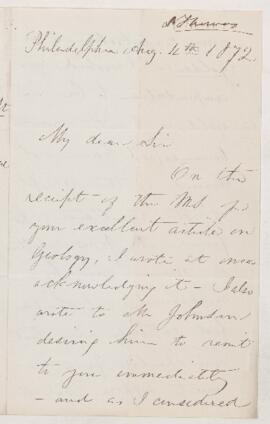 Philadelphia Aug. 4th 1872
My dear Sir
On the
receipt of the MS for
your excellent article on
Geology, I wrote at once
acknowledging it – I also
wrote to Mr Johnson
desiring him to remit
to you immediately
– and as I considered